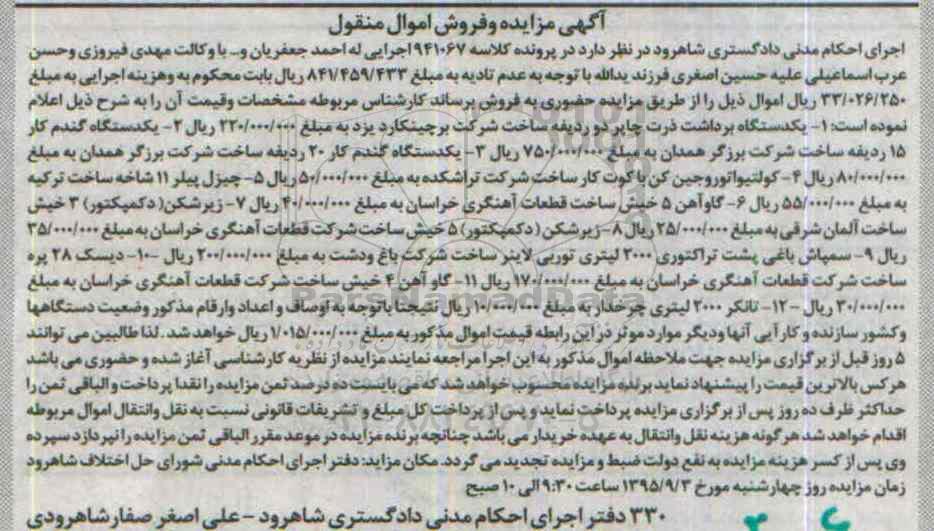 آگهی مزایده وفروش اموال منقول
اجرای احکام مدنی دادگستری شاهرود در نظر دارد در پرونده کلاسه ۹۴۱۰۶۷ اجرایی له احمد جعفریان و... با وکالت مهدی فیروزی وحسن
عرب اسماعیلی علیه حسین اصغری فرزند یدالله با توجه به عدم تادیه به مبلغ ۸۴۱/۴۵۹/۴۳۳ ریال بابت محکوم به وهزینه اجرایی به مبلغ
۳۳/۰۲۶/۲۵۰ ریال اموال ذیل را از طریق مزایده حضوری به فروش برساند کارشناس مربوطه مشخصات وقیمت آن را به شرح ذیل اعلام
نموده است: ۱- یکدستگاه برداشت ذرت چاپر دو ردیفه ساخت شرکت برچینکارد یزد به مبلغ ۲۲۰/۰۰۰/۰۰۰ ریال ۲- یکدستگاه گندم کار
۱۵ ردیفه ساخت شرکت برزگر همدان به مبلغ ۷۵۰/۰۰۰/۰۰۰ ریال ۳- یکدستگاه گندم کار ۲۰ ردیفه ساخت شرکت برزگر همدان به مبلغ
۸۰/۰۰۰/۰۰۰ ریال ۴- کولتیواتوروجین کن با کوت کار ساخت شرکت تراشکده به مبلغ ۵۰/۰۰۰/۰۰۰ ریال ۵- چیزل پیلر ۱۱ شاخه ساخت ترکیه
به مبلغ ۵۵/۰۰۰/۰۰۰ ریال ۶- گاوآهن ۵ خیش ساخت قطعات آهنگری خراسان به مبلغ ۴۰/۰۰۰/۰۰۰ ریال ۷- زیرشکن( دکمپکتور) ۳ خیش
ساخت آلمان شرقی به مبلغ ۲۵/۰۰۰/۰۰۰ ریال ۸- زیرشکن ( دکمپکتور) ۵ خیش ساخت شرکت قطعات آهنگری خراسان به مبلغ ۳۵/۰۰۰/۰۰۰
ریال ۹- سمپاش باغی پشت تراکتوری ۲۰۰۰ لیتری توربی لاینر ساخت شرکت باغ ودشت به مبلغ ۲۰۰/۰۰۰/۰۰۰ ریال -۱۰- دیسک ۲۸ پره
ساخت شرکت قطعات آهنگری خراسان به مبلغ ۱۷۰/۰۰۰/۰۰۰ ریال ۱۱- گاو آهن ۴ خیش ساخت شرکت قطعات آهنگری خراسان به مبلغ
۳۰/۰۰۰/۰۰۰ ریال -۱۲- تانکر ۲۰۰۰ لیتری چرخدار به مبلغ ۱۰/۰۰۰/۰۰۰ ریال نتیجتا باتوجه به اوصاف و اعداد وارقام مذکور وضعیت دستگاهها
وکشور سازنده و کارآیی آنها ودیگر موارد موثر در این رابطه قیمت اموال مذکور به مبلغ ۱/۰۱۵/۰۰۰/۰۰۰ ریال خواهد شد. لذا طالبین می توانند
۵ روز قبل از برگزاری مزایده جهت ملاحظه اموال مذکور به این اجرا مراجعه نمایند مزایده از نظریه کارشناسی آغاز شده و حضوری می باشد
هرکس بالاترین قیمت را پیشنهاد نماید برنده مزایده محسوب خواهد شد که می بایست ده درصد ثمن مزایده را نقدا پرداخت و الباقی ثمن را
حداکثر ظرف ده روز پس از برگزاری مزایده پرداخت نماید و پس از پرداخت کل مبلغ و تشریفات قانونی نسبت به نقل وانتقال اموال مربوطه
اقدام خواهد شد هرگونه هزینه نقل وانتقال به عهده خریدار می باشد چنانچه برنده مزایده در موعد مقرر الباقی ثمن مزایده را نپردازد سپرده
وی پس از کسر هزینه مزایده به نفع دولت ضبط و مزایده تجدید می گردد. مکان مزاید: دفتر اجرای احکام مدنی شورای حل اختلاف شاهرود
زمان مزایده روز چهارشنبه مورخ ۱۳۹۵/۹/۳ ساعت ۹:۳۰ الی ۱۰ صبح
۳۳۰ دفتر اجرای احکام مدنی دادگستری شاهرود - علی اصغر صفارشاهرودی
ParsNamadData